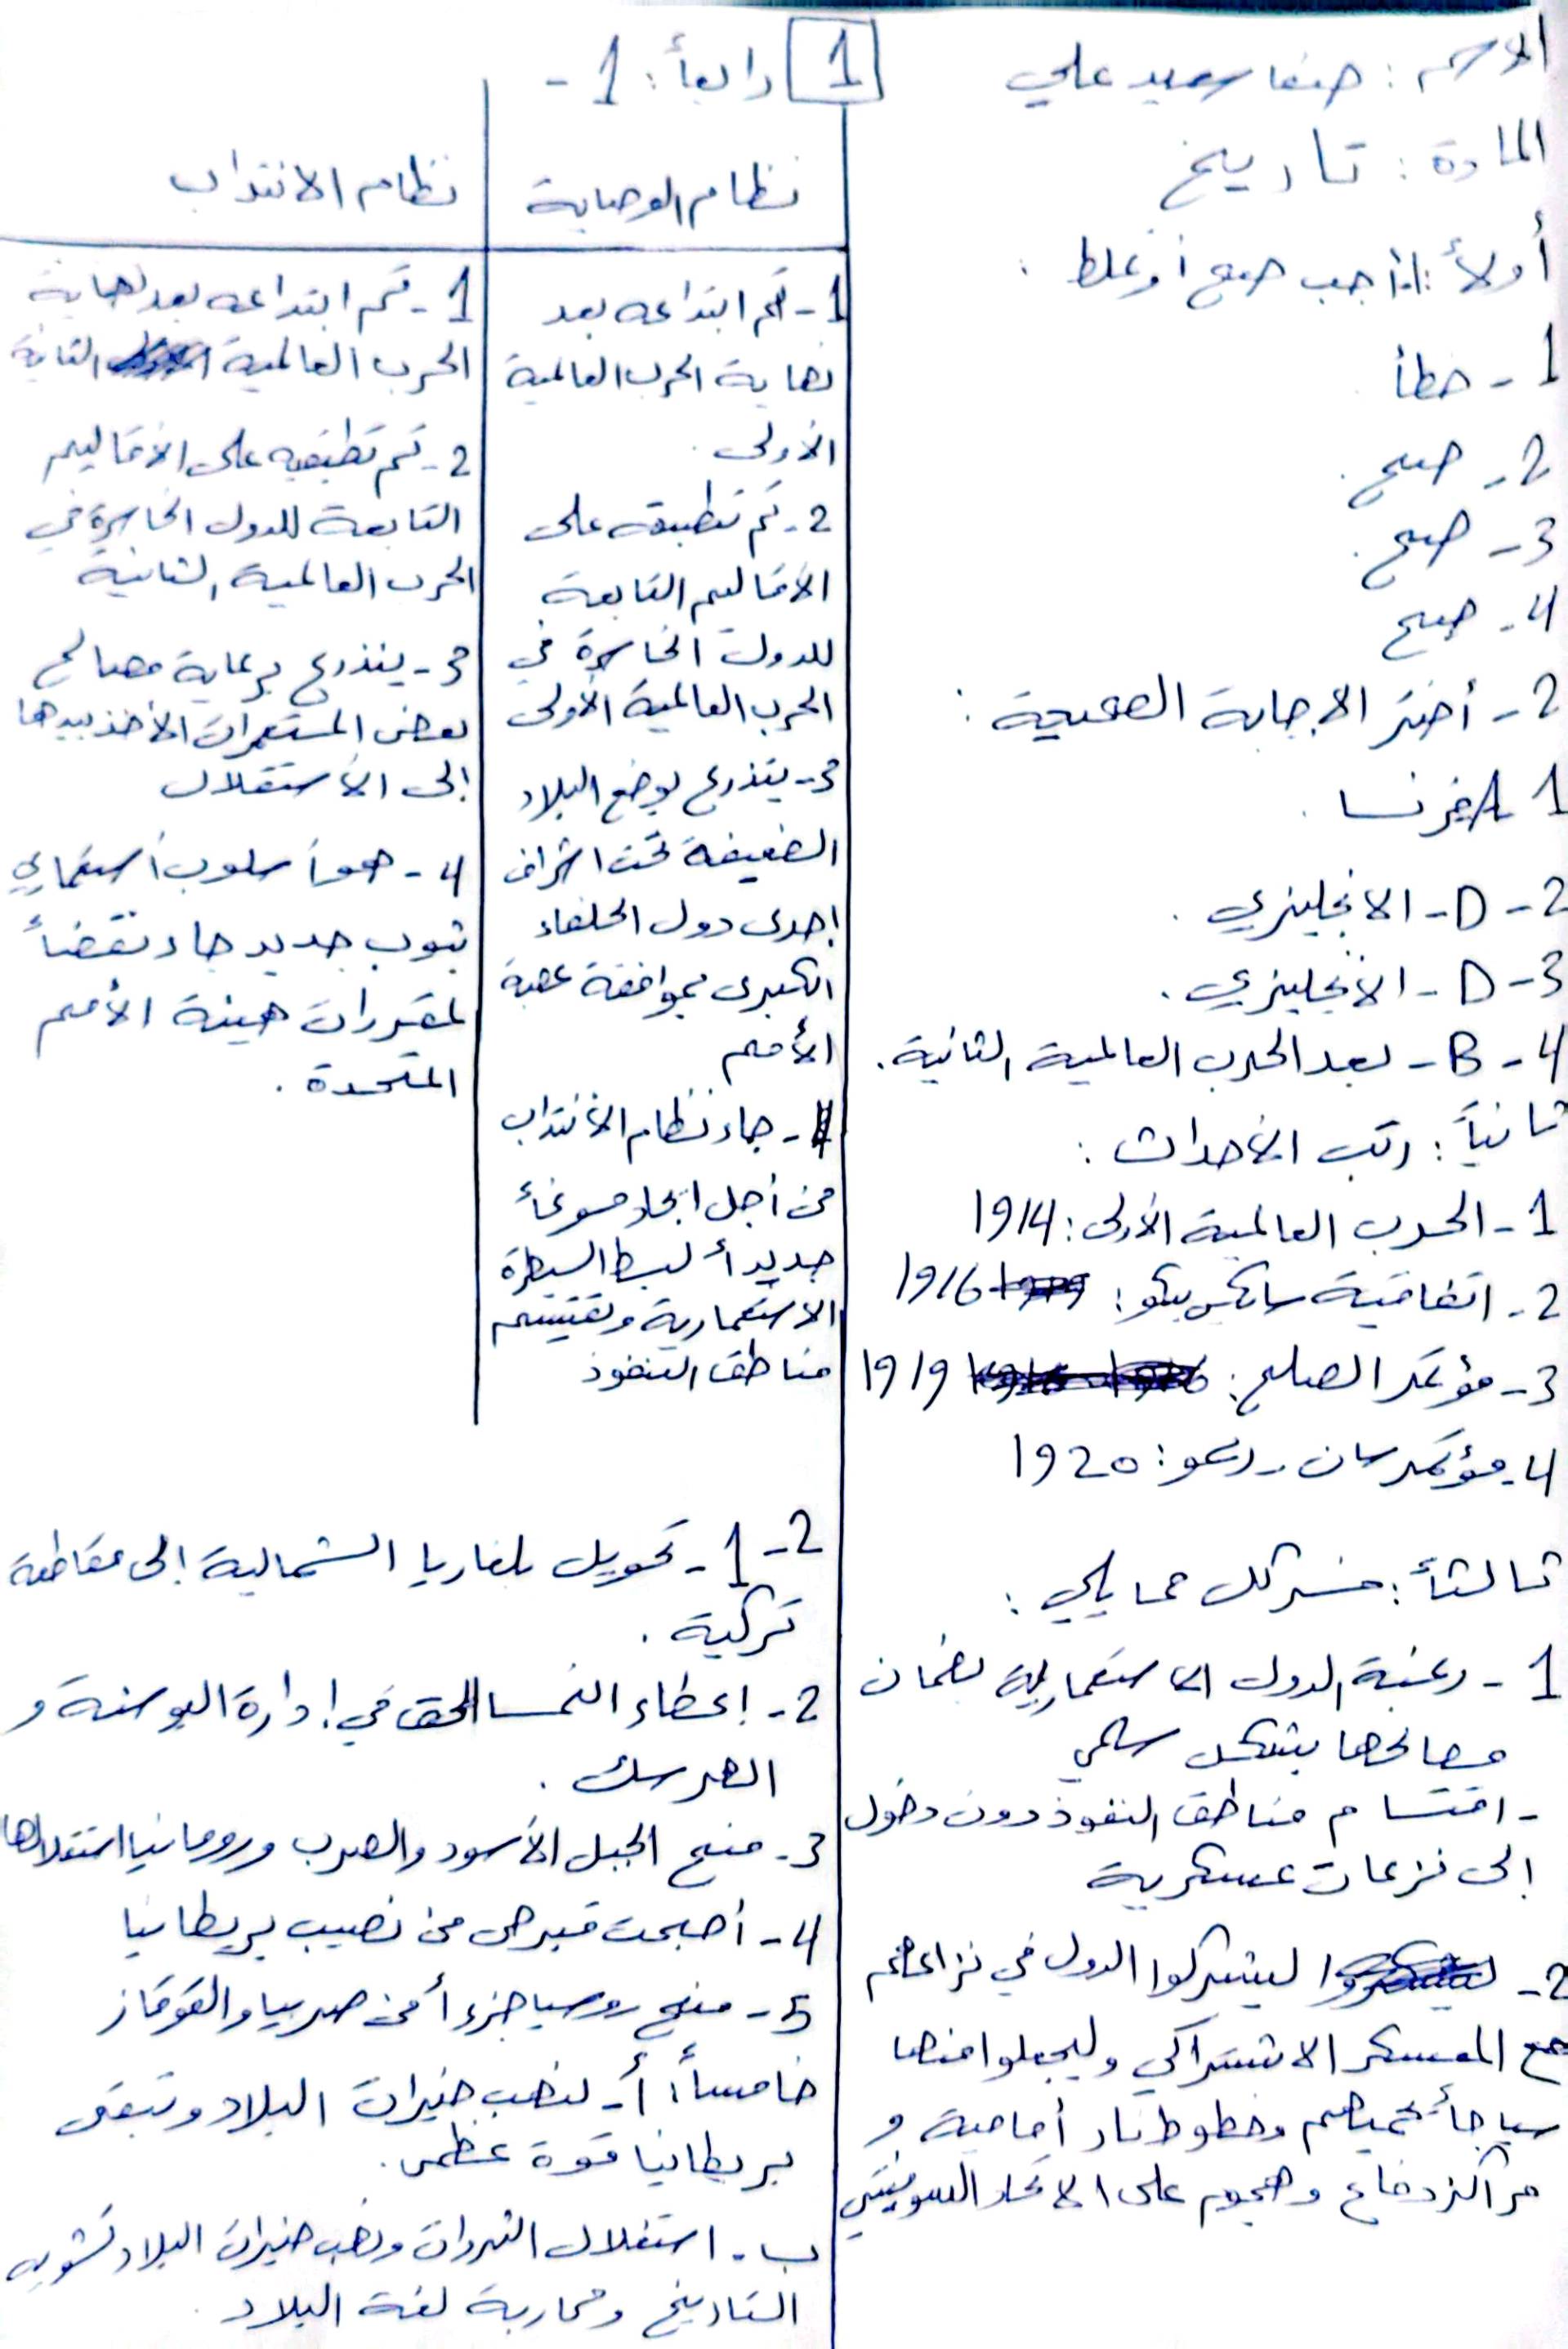 الاسم: صفا سعيد علي
المادة: تاريخ
أولاً: أجب صح أو غلط:
1- خطأ
2- صح.
3- صح.
4- صح
2- أختر الاجابة الصحيحة:
1 A فرنسا.
2- D- الانجليزي.
3- D- الانجليزي.
4- B- بعد الحرب العالمية الثانية.
ثانياً: رتب الأحداث:
1- الحرب العالمية الأولى: 1914
2- اتفاقية سايكس بيكو: 1916
3- مؤتمر الصلح: 1919
4- مؤتمر سان ريمو: 1920
ثالثاً: فسر كل مما يلي:
1- رغبة الدول الاستعمارية بضمان
مصالحها بشكل سلمي
- اقتسام مناطق النفوذ دون دخول
إلى نزعات عسكرية
2- ليشركوا الدول في نزاعاتهم
مع المعسكر الاشتراكي وليجعلوا منها
سياجاً تحميهم وخطوط نار أمامية و
مراكز دفاع وهجوم على الاتحاد السوفيتي
1
رابعاً: 1-
نظام الوصاية
1- تم ابتداعه بعد
نهاية الحرب العالمية
الأولى.
2- تم تطبيقه على
الأقاليم التابعة
للدول الخاسرة في
الحرب العالمية الأولى
3- يتذرع بوضع البلاد
الضعيفة تحت اشراف
إحدى دول الحلفاء
الكبرى بموافقة عصبة
الأمم
4- جاء نظام الانتداب
من أجل ايجاد مسوغاً
جديداً لبسط السيطرة
الاستعمارية وتقسيم
مناطق النفوذ
نظام الانتداب
1- تم ابتداعه بعد نهاية
الحرب العالمية الثانية
2- تم تطبيقه على الأقاليم
التابعة للدول الخاسرة في
الحرب العالمية الثانية
3- يتذرع برعاية مصالح
بعض المستعمرات الأخذ بيدها
إلى الأستقلال
4- هو أسلوب أستعماري
بثوب جديد جاء نقضاً
لمقررات هيئة الأمم
المتحدة.
2- 1- تحويل بلغاريا الشمالية إلى مقاطعة
تركية.
2- إعطاء النمسا الحق في إدارة البوسنة و
الهرسك.
3- منح الجبل الأسود والصرب ورومانيا استقلالها
4- أصبحت قبرص من نصيب بريطانيا
5- منح روسيا جزءاً من صربيا والقوقاز
خامساً: أ- لنهب خيرات البلاد وتبقى
بريطانيا قوة عظمى.
ب- استغلال الثروات ونهب خيرات البلاد تشويه
التاريخ ومحاربة لغة البلاد.